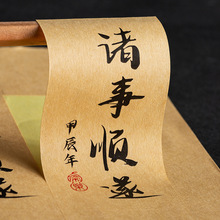 诸事顺遂
甲辰年